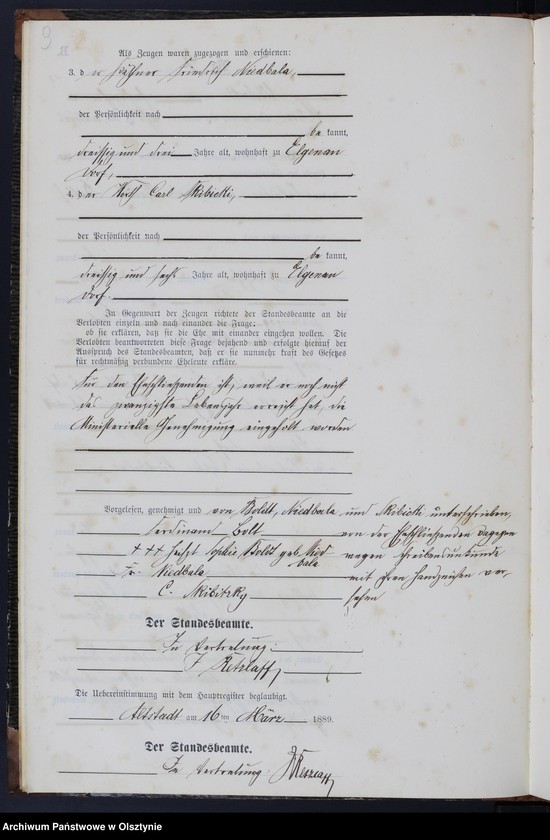 9
Als Zeugen waren zugezogen und erschienen:
3. d er Friedrich Niedbala,
der Persönlichkeit nach
be kannt,
dreißig und drei Jahre alt, wohnhaft zu Elgenau
Dorf,
4. d er Wirth Carl Skibicki,
der Persönlichkeit nach
be kannt,
dreißig und sechs Jahre alt, wohnhaft zu Elgenau
Dorf.
In Gegenwart der Zeugen richtete der Standesbeamte an die
Verlobten einzeln und nach einander die Frage:
ob sie erklären, daß sie die Ehe mit einander eingehen wollen. Die
Verlobten beantworteten diese Frage bejahend und erfolgte hierauf der
Ausspruch des Standesbeamten, daß er sie nunmehr kraft des Gesetzes
für rechtmäßig verbundene Eheleute erkläre.
Für den Eheschließenden ist, weil er noch nicht
das zwanzigste Lebensjahr erreicht hat, die
Ministerielle Genehmigung eingeholt worden
Vorgelesen, genehmigt und von Boldt, Niedbala und Skibicki unterschrieben,
von der Eheschließenden dagegen
wegen Schreibensunkunde
mit ihren Handzeichen ver-
sehen
Ferdinand Bolt
+++ Sophie Boldt geb. Nied
bala
Fr. Niedbala
C. Skibitzky
Der Standesbeamte.
In Vertretung:
F Retzlaff
Die Uebereinstimmung mit dem Hauptregister beglaubigt.
Altstadt am 16ten März 1889.
Der Standesbeamte.
In Vertretung: F Retzlaff
Archiwum Państwowe w Olsztynie